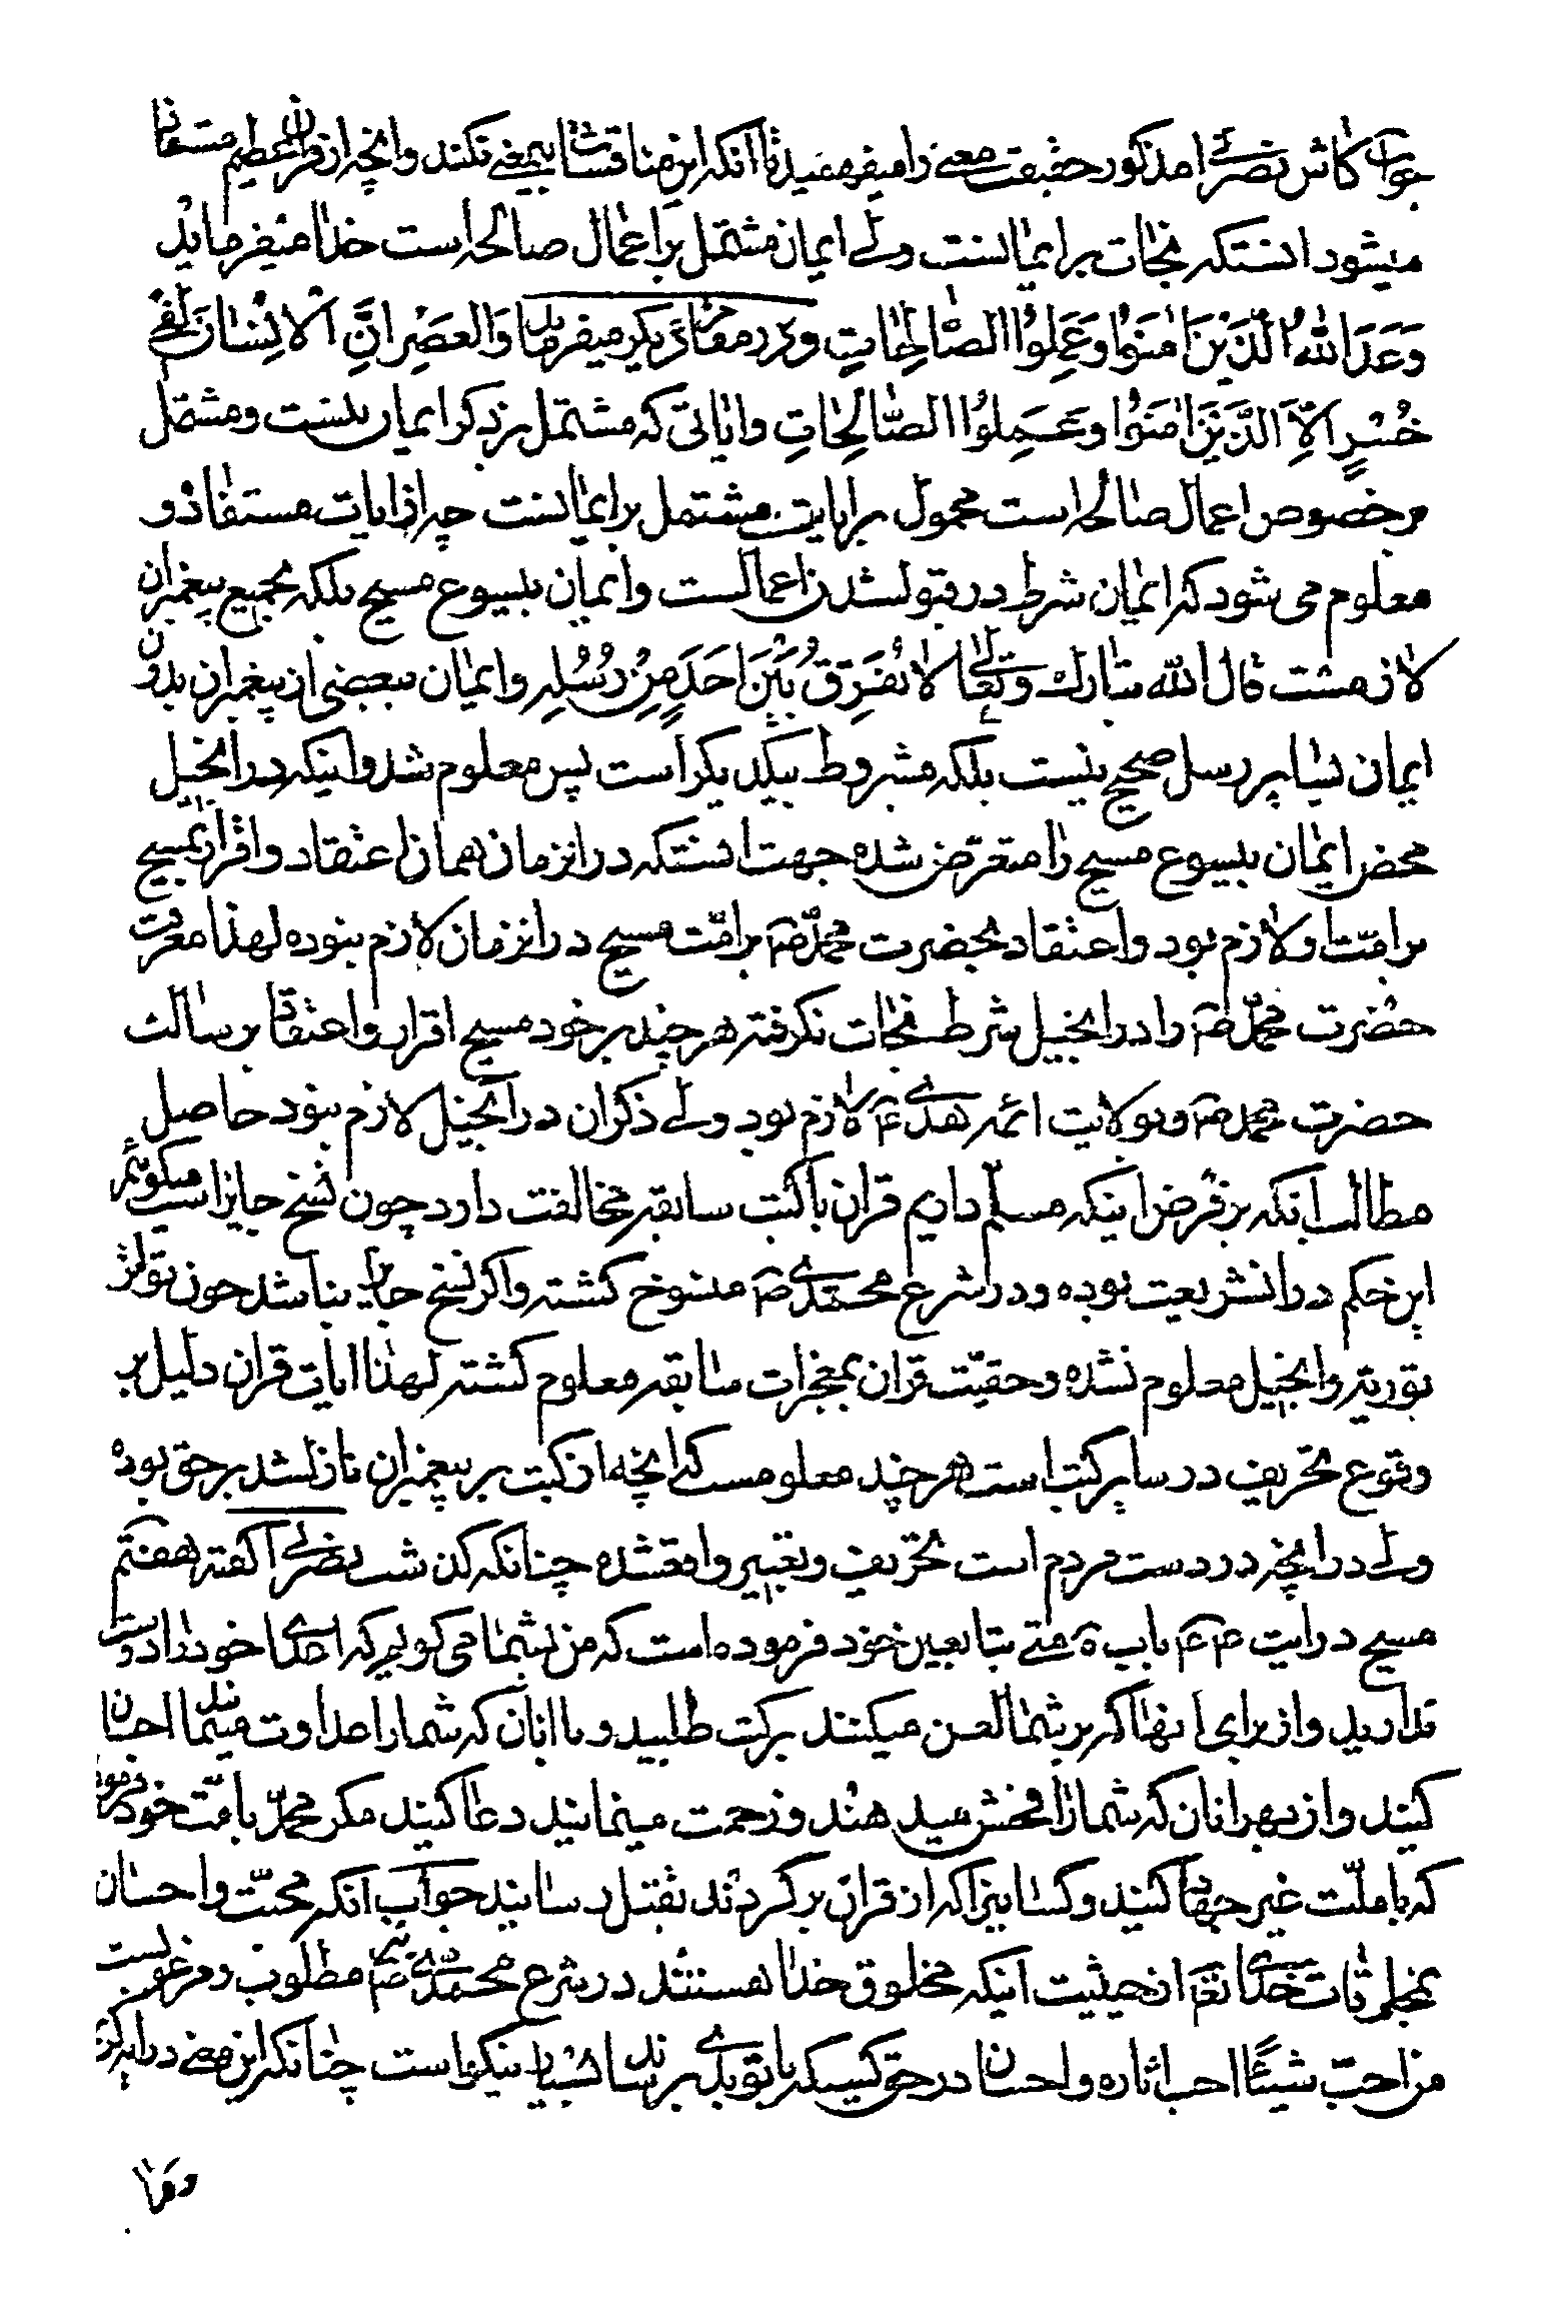 جواب کاش نصرای مذکور حقیقت معنی را میفهمید تا آنکه این مناقشات بیمعنی نکند و آنچه از قران عظیم مستفاد
میشود اینستکه نجات بر ایمانست ولی ایمان مشتمل بر اعمال صالحه است خدا میفرماید
وَعَدَ اللّٰهُ الَّذینَ اٰمَنوُا وَعَمِلوُا الصّٰالِحٰاتِ و در مقام دیگر میفرماید وَالعَصْرِ اِنَّ الْاِنْسٰانَ لَفی
خُسْرٍ اِلّاَ الَّذینَ اٰمَنوُا وَعَمِلوُا الصّٰالِحٰاتِ و ایاتی که مشتمل بر ذکر ایمان نیست و مشتمل
بر خصوص اعمال صالحه است محمول بر ایات مشتمل بر ایمانست چه از ایات مستفاد و
معلوم می شود که ایمان شرط در قبولشدن اعمالست و ایمان بیسوع مسیح بلکه بجمیع پیغمبران
لازمست قال الله تبارک و تعالی لا نُفَرِّقُ بَیْنَ اَحَدٍ مِنْ رُسُلِهِ و ایمان ببعضی از پیغمبران بدون
ایمان بسایر رسل صحیح نیست بلکه مشروط بیکدیکر است پس معلوم شد و اینکه در انجیل
محض ایمان بیسوع مسیح را متعرّض شده جهت اینستکه در انزمان همان اعتقاد و اقرار بمسیح
بر امّت او لازم بود و اعتقاد بحضرت محمّد ص بر امّت مسیح در انزمان لازم نبوده لهذا معرفت
حضرت محمّد ص را در انجیل شرط نجات نکرفته هر چند بر خود مسیح اقرار و اعتقاد برسالت
حضرت محمد ص و بولایت ائمه هدی ع لازم بود ولی ذکر ان در انجیل لازم نبود حاصل
مطالب انکه بر فرض اینکه مسلّم داریم قران با کتب سابقه مخالفت دارد چون نسخ جایز است میکوئیم
این حکم در انشریعت بوده و در شرع محمّدی ص منسوخ کشته و اکر نسخ جایز نباشد چون تواتر
توریة و انجیل معلوم نشده و حقیّت قران بمعجزات سابقه معلوم کشته لهذا ایات قران دلیل بر
وقوع تحریف در سایر کتب است هر چند معلومست که انچه از کتب بر پیغمبران نازلشد بر حق بوده
ولی در انچه در دست مردم است تحریف و تغییر واقعشده چنانکه کذشت نصرای کفته هفتم
مسیح در ایت ۴۴ باب ۵ متی بتابعین خود فرموده است که من بشما می کویم که اعدای خود را دوست
بدارید و از برای انها که بر شما لعن میکنند برکت طلبید و با انان که شما را عداوت مینمایند احسان
کنید و از بهر انان که شما را فحش میدهند و زحمت مینمایند دعا کنید مکر محمّد بامّت خود فرموده
که با ملّت غیر جهاد کنید و کسانیرا که از قران بر کردند بقتل رسانید جواب انکه محبّت و احسان
بمخلوقات خدای تعم از حیثیت اینکه مخلوق خدا هستند در شرع محمّدی ص نیز مطلوب و مرغوبست
من احبّ شیئًا احب اثاره و احسان در حق کسیکه با تو بدی برساند بسیار نیکو است چنانکه این معنی در ایه کریمه